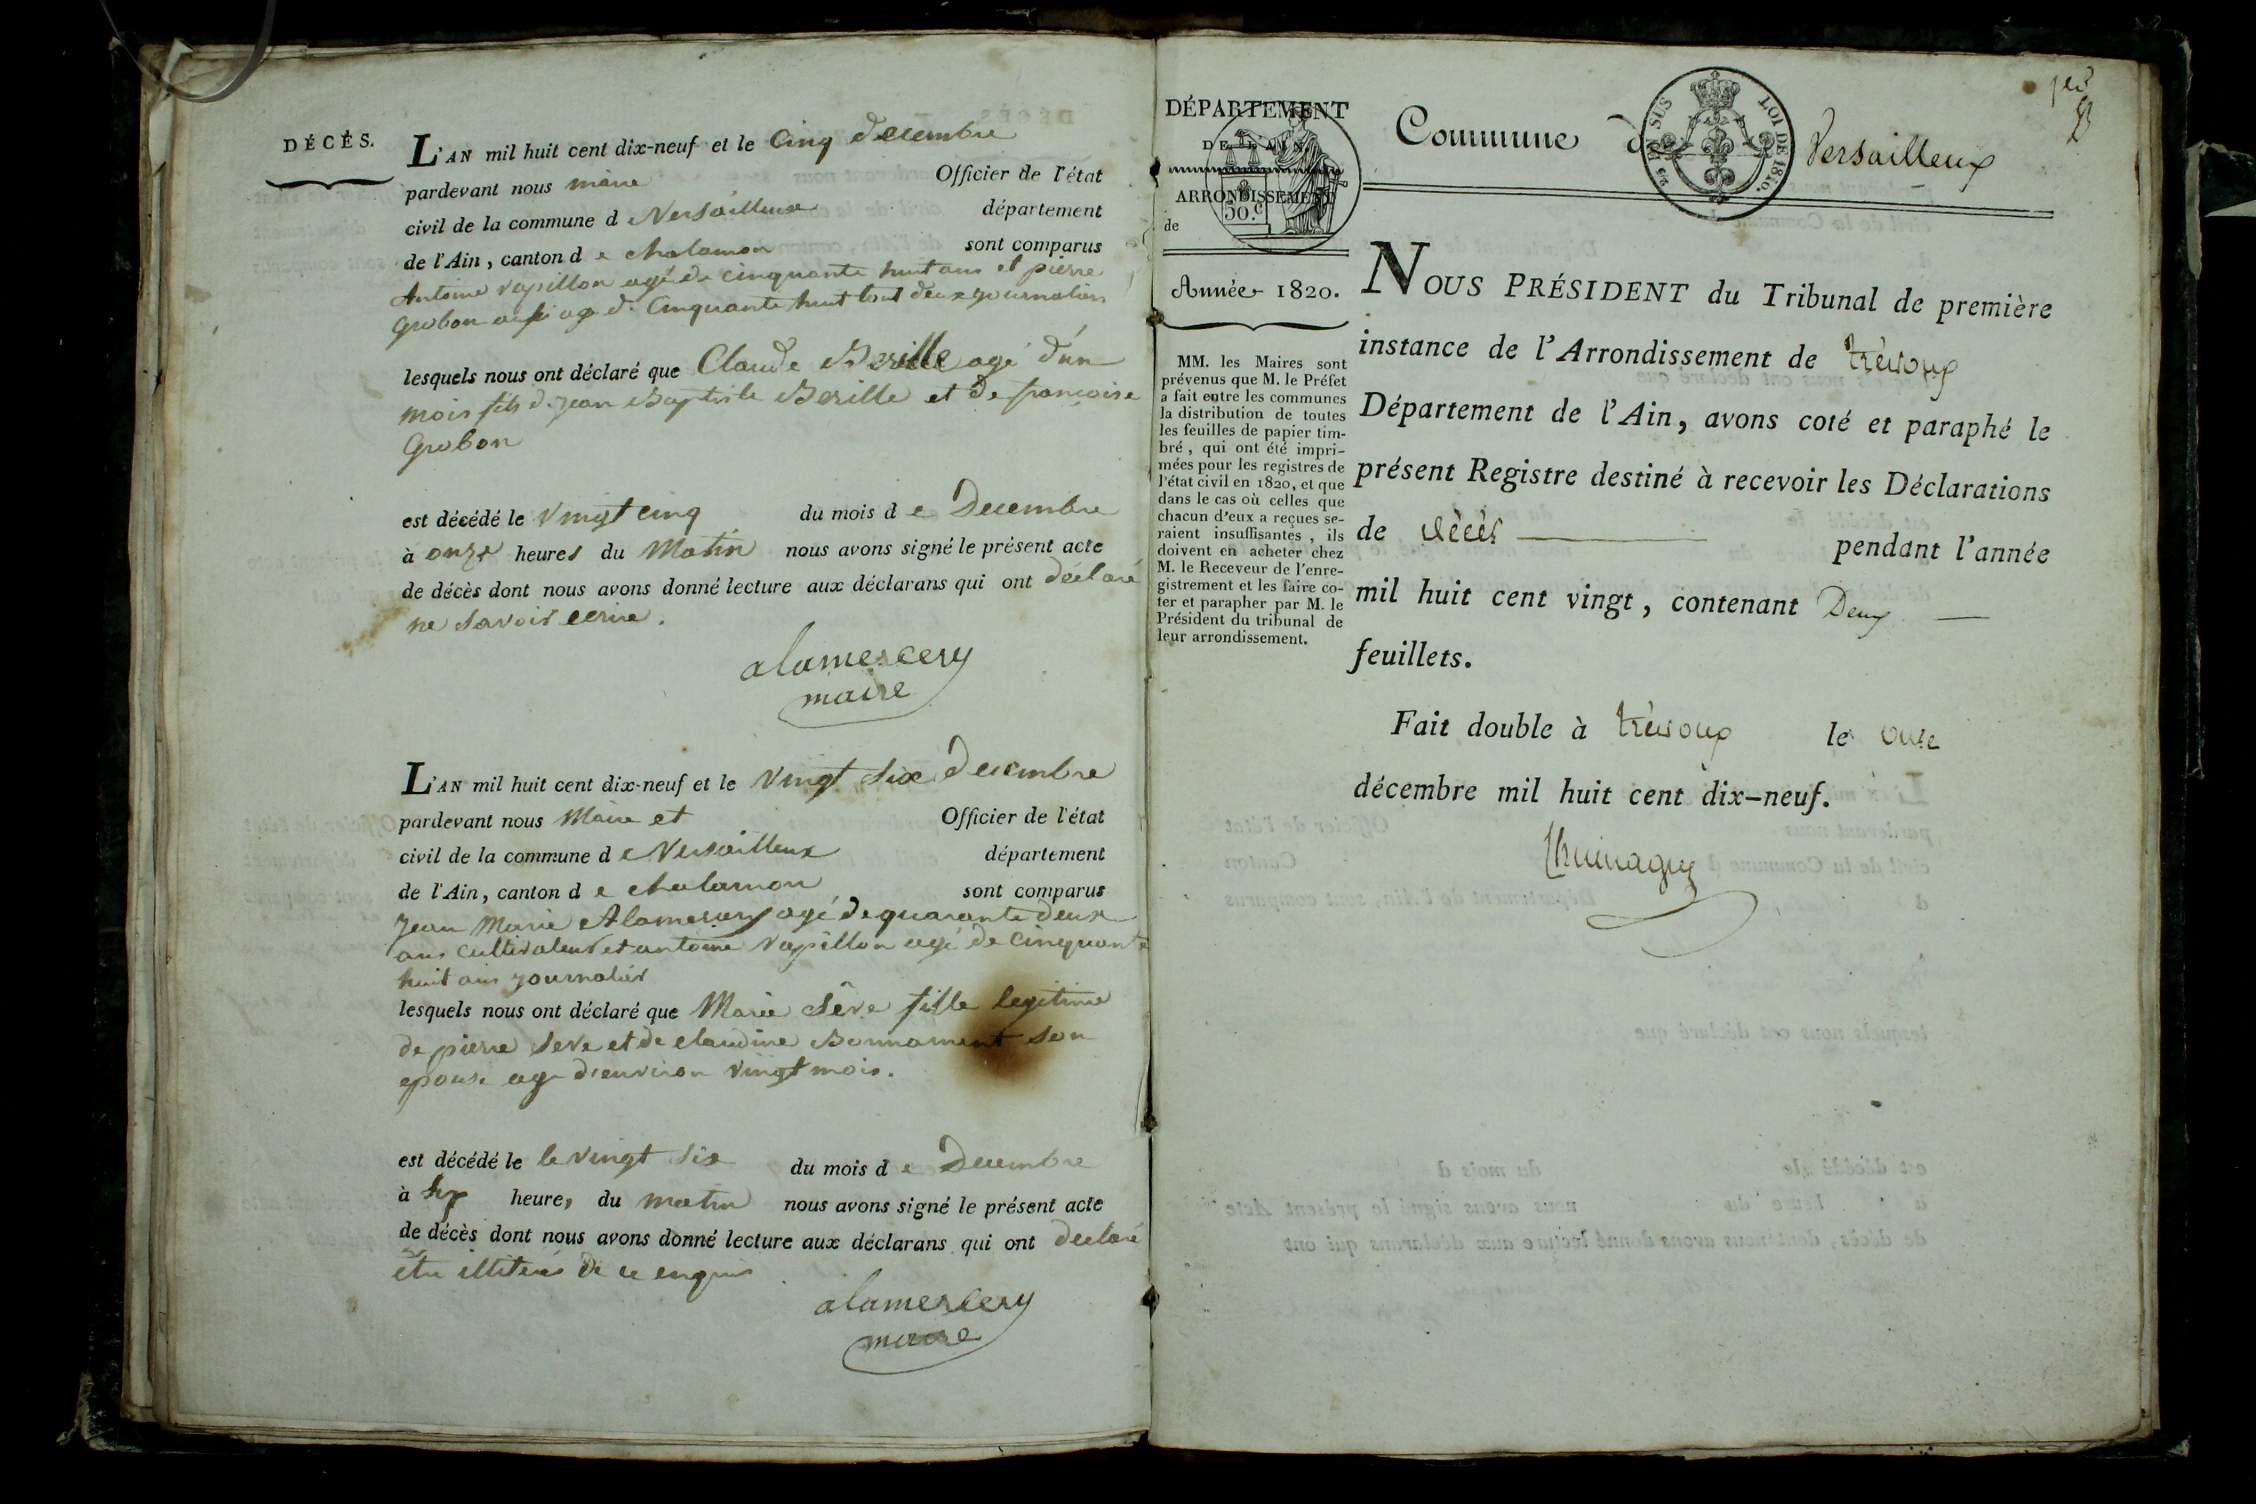 DÉCÈS.
L'AN mil huit cent dix-neuf et le Cinq decembre
pardevant nous maire Officier de l'état
civil de la commune d e Versailleux département
de l'Ain, canton d e chalamon sont comparus
Antoine vapillon agé de cinquante huit ans et pierre
Grobon aussi agé de Cinquante huit tout deux journalier
lesquels nous ont déclaré que Claude Berille agé d'un
mois fils de jean Baptiste Berille et de francoise
Grobon
est décédé le vingt cinq du mois d e Decembre
à onze heures du Matin nous avons signé le présent acte
de décès dont nous avons donné lecture aux déclarans qui ont déclaré
ne savoir ecrire.
alamercery
maire
L'AN mil huit cent dix-neuf et le vingt six decembre
pardevant nous Maire et Officier de l'état
civil de la commune d e Versailleux département
de l'Ain, canton d e chalamon sont comparus
jean Marie Alamercery agé de quarante deux
ans cultivateur et antoine vapillon agé de cinquante
huit ans journalier
lesquels nous ont déclaré que Marie Sève fille legitime
de pierre seve et de claudine Bonnament son
epouse age d'environ vingt mois.
est décédé le le vingt six du mois d e Decembre
à heures du matin nous avons signé le présent acte
de décès dont nous avons donné lecture aux déclarans qui ont declaré
être illiterés de ce enquis
alamercery
maire
DÉPARTEMENT
DE L'AIN.
ARRONDISSEMENT
50.c
de
Année 1820.
MM. les Maires sont
prévenus que M. le Préfet
a fait entre les communes
la distribution de toutes
les feuilles de papier tim-
bré, qui ont été impri-
mées pour les registres de
l'état civil en 1820, et que
dans le cas où celles que
chacun d'eux a reçues se-
raient insuffisantes, ils
doivent en acheter chez
M. le Receveur de l'enre-
gistrement et les faire co-
ter et parapher par M. le
Président du tribunal de
leur arrondissement.
Commune de Versailleux
EN SUS LOI DE 1816.
NOUS PRÉSIDENT du Tribunal de première
instance de l'Arrondissement de trévoux
Département de l'Ain, avons coté et paraphé le
présent Registre destiné à recevoir les Déclarations
de décès pendant l'année
mil huit cent vingt, contenant Deux
feuillets.
Fait double à trévoux le onze
décembre mil huit cent dix-neuf.